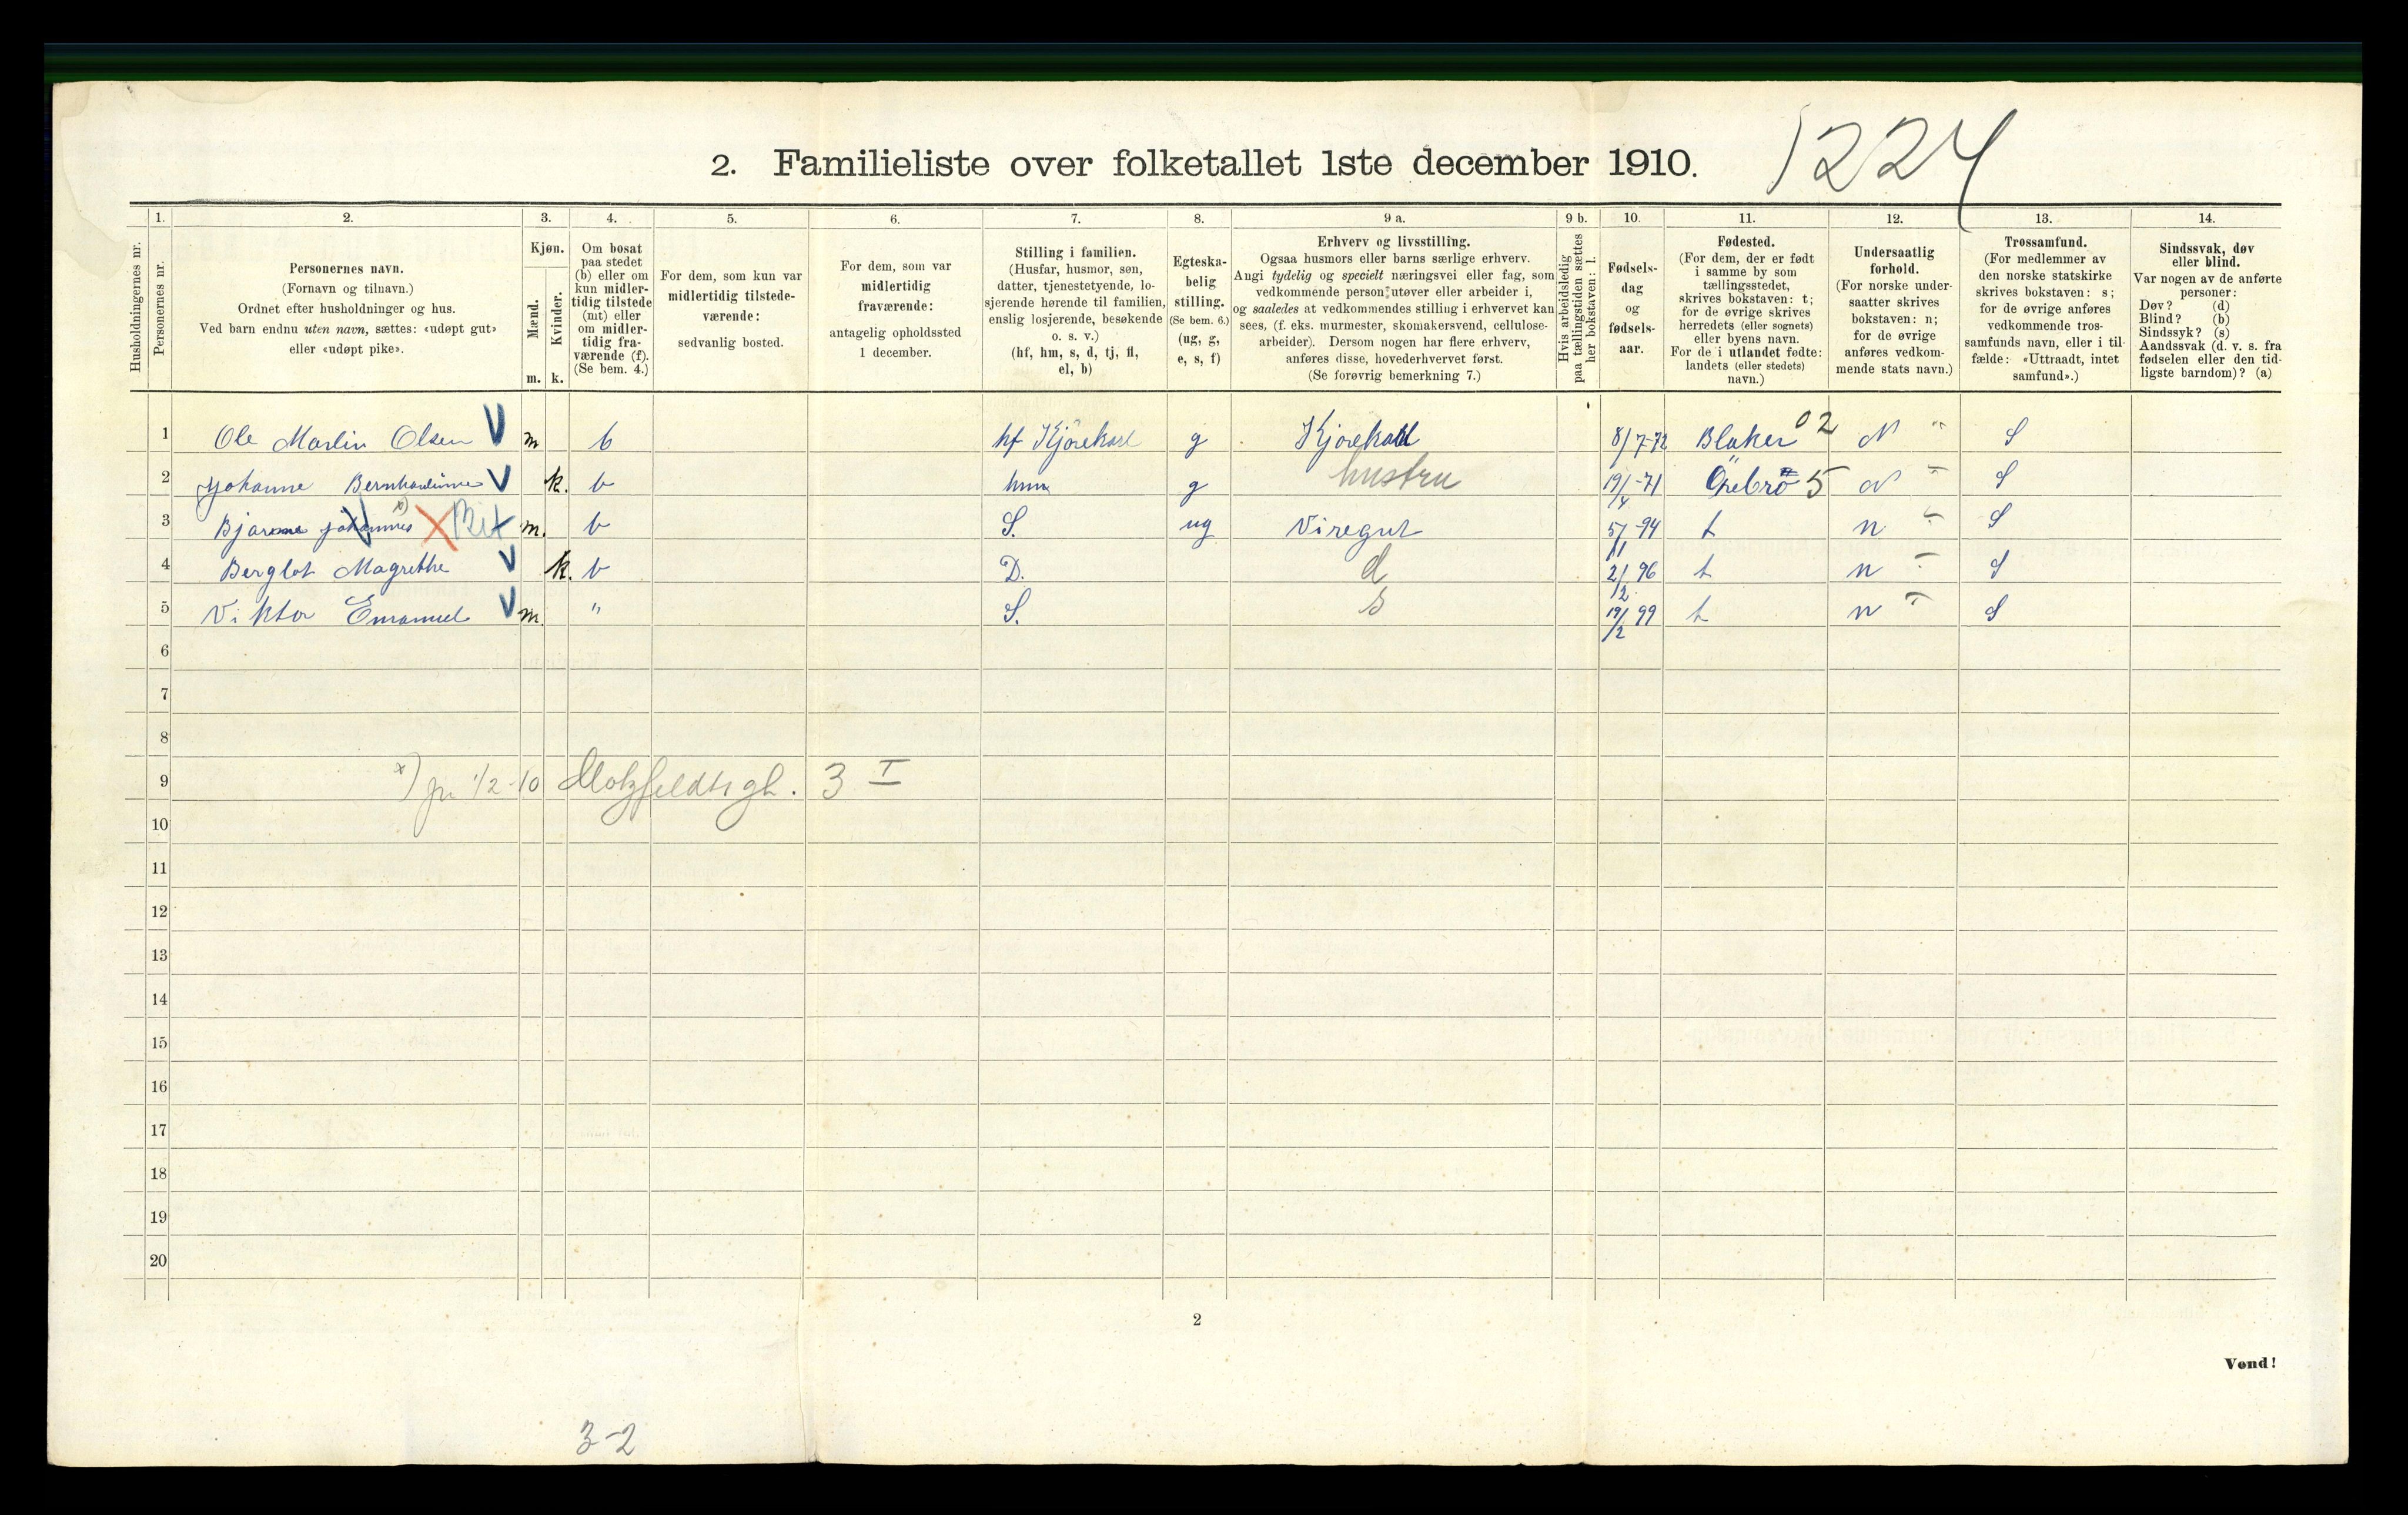 1224
2. Familieliste over folketallet 1ste december 1910.
Husholdningernes nr.
1. Personernes nr.
2. Personernes navn.
(Fornavn og tilnavn.)
Ordnet efter husholdninger og hus.
Ved barn endnu uten navn, sættes: «udøpt gut»
eller «udøpt pike».
3. Kjøn.
Mænd. m.
Kvinder. k.
4. Om bosat
paa stedet
(b) eller om
kun midler-
tidig tilstede
(mt) eller
om midler-
tidig fra-
værende (f).
(Se bem. 4.)
5. For dem, som kun var
midlertidig tilstede-
værende:
sedvanlig bosted.
6. For dem, som var
midlertidig
fraværende:
antagelig opholdssted
1 december.
7. Stilling i familien.
(Husfar, husmor, søn,
datter, tjenestetyende, lo-
sjerende hørende til familien,
enslig losjerende, besøkende
o. s. v.)
(hf, hm, s, d, tj, fl,
el, b)
8. Egteska-
belig
stilling.
(Se bem. 6.)
(ug, g,
e, s, f)
9 a. Erhverv og livsstilling.
Ogsaa husmors eller barns særlige erhverv.
Angi tydelig og specielt næringsvei eller fag, som
vedkommende person utøver eller arbeider i,
og saaledes at vedkommendes stilling i erhvervet kan
sees, (f. eks. murmester, skomakersvend, cellulose-
arbeider). Dersom nogen har flere erhverv,
anføres disse, hovederhvervet først.
(Se forøvrig bemerkning 7.)
9 b. Hvis arbeidsledig
paa tællingstiden sættes
her bokstaven: l.
10. Fødsels-
dag
og
fødsels-
aar.
11. Fødested.
(For dem, der er født
i samme by som
tællingsstedet,
skrives bokstaven: t;
for de øvrige skrives
herredets (eller sognets)
eller byens navn.
For de i utlandet fødte:
landets (eller stedets)
navn.)
12. Undersaatlig
forhold.
(For norske under-
saatter skrives
bokstaven: n;
for de øvrige
anføres vedkom-
mende stats navn.)
13. Trossamfund.
(For medlemmer av
den norske statskirke
skrives bokstaven: s;
for de øvrige anføres
vedkommende tros-
samfunds navn, eller i til-
fælde: «Uttraadt, intet
samfund».)
14. Sindssvak, døv
eller blind.
Var nogen av de anførte
personer:
Døv? (d)
Blind? (b)
Sindssyk? (s)
Aandssvak (d. v. s. fra
fødselen eller den tid-
ligste barndom)? (a)
1 Ole Martin Olsen V m b hf Kjørekarl g Kjørekarl 8/7-72 Blaker 02 N " S
2 Johanne Bernhardine V k. b hm g hustru 19/4-71 Örebrö 5 N " S
3 Bjarne Johannes x) m. b S. ug Viregut 5/11-94 t n " S
4 Berglot Magrethe V k. b D. d 2/12 96 t n " S
5 Viktor Emanuel V m. " S. s 19/2 99 t n " S
6
7
8
9 x) pr 1/2-10 Motzfeldtsgt. 3 I
10
11
12
13
14
15
16
17
18
19
20
2
Vend!
3-2